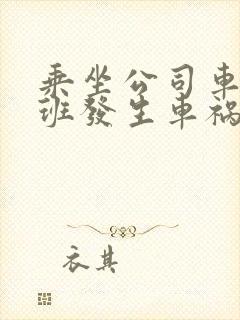 乘坐公司車
班發生車禍
衣其